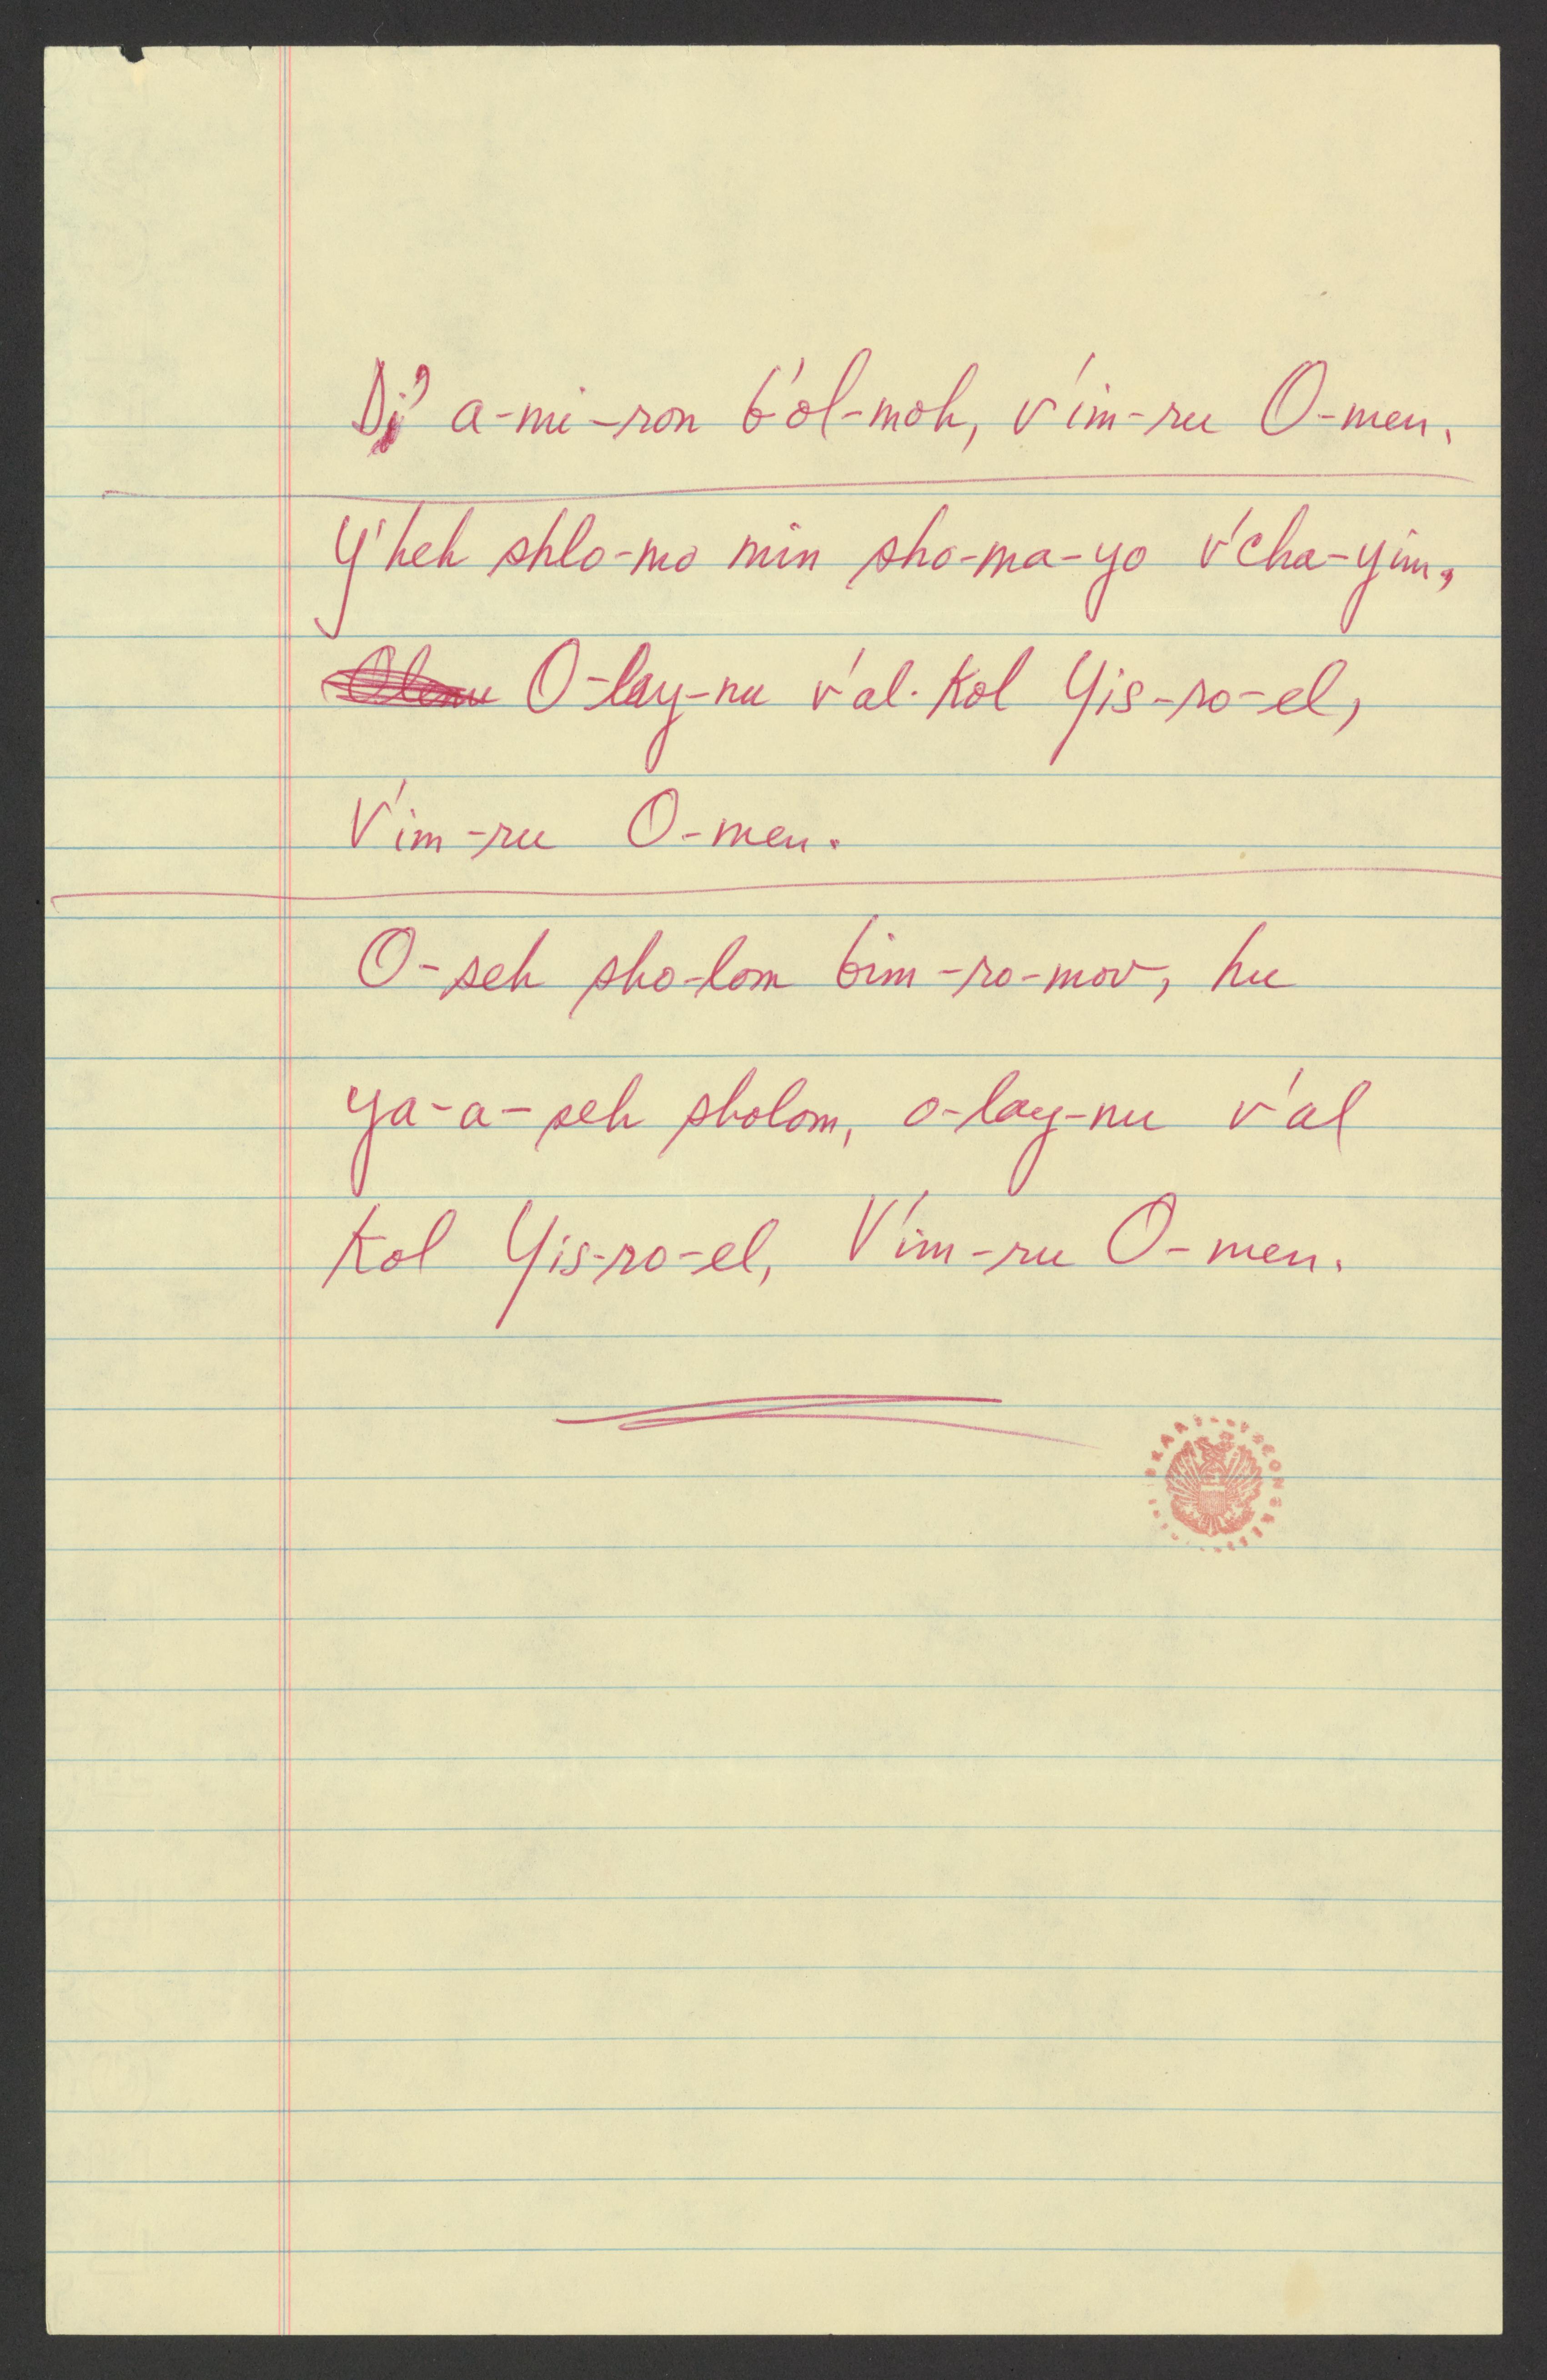 Di' a-mi-ron b'ol-moh, v'im-ru O-men.
Y'heh shlo-mo min sho-ma-yo v'cha-yim,
O-lay-nu v'al-kol Yis-ro-el,
V'im-ru O-men.
O-seh sho-lom bim-ro-mov, hu
ya-a-seh sholom, o-lay-nu v'al
Kol Yis-ro-el, V'im-ru O-men.